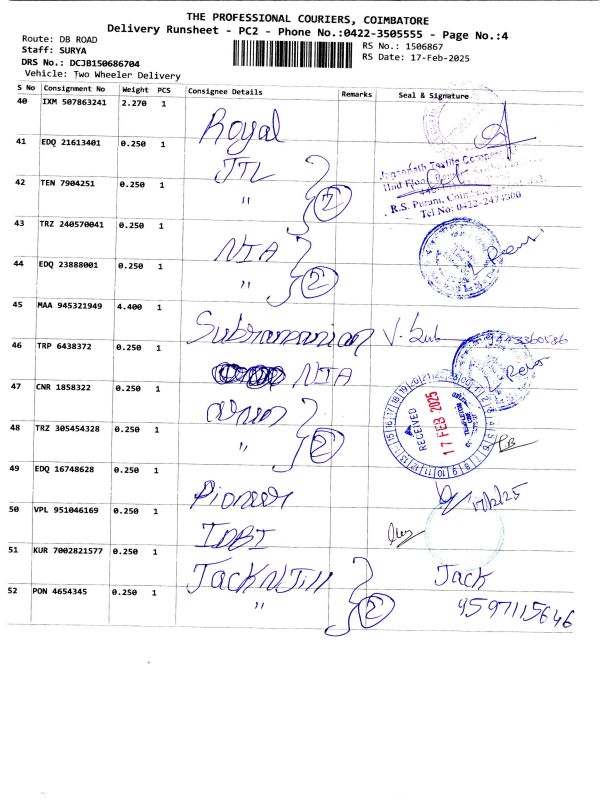 THE PROFESSIONAL COURIERS, COIMBATORE
Delivery Runsheet - PC2 - Phone No.:0422-3505555 - Page No.:4
Route: DB ROAD
RS No.: 1506867
Staff: SURYA
RS Date: 17-Feb-2025
DRS No.: DCJB150686704
Vehicle: Two Wheeler Delivery
S No Consignment No Weight PCS Consignee Details Remarks Seal & Signature
40 IXM 507863241 2.270 1 Royal
41 EDQ 21613401 0.250 1 JTL
Jagannath Textile Company
42 TEN 7904251 0.250 1 " 2
R.S. Puram,
Tel No: 0422-2474500
43 TRZ 240570041 0.250 1 NIA
44 EDQ 23888001 0.250 1 " 2
45 MAA 945321949 4.400 1 Subramanian V. Sub 9443360586
46 TRP 6438372 0.250 1 NIA
47 CNR 1858322 0.250 1
RECEIVED
17 FEB 2025
48 TRZ 305454328 0.250 1 " 2
49 EDQ 16748628 0.250 1 Pioneer 17/2/25
50 VPL 951046169 0.250 1 IDBI
51 KUR 7002821577 0.250 1 Jack N Jill Jack
52 PON 4654345 0.250 1 " 2 9597115646